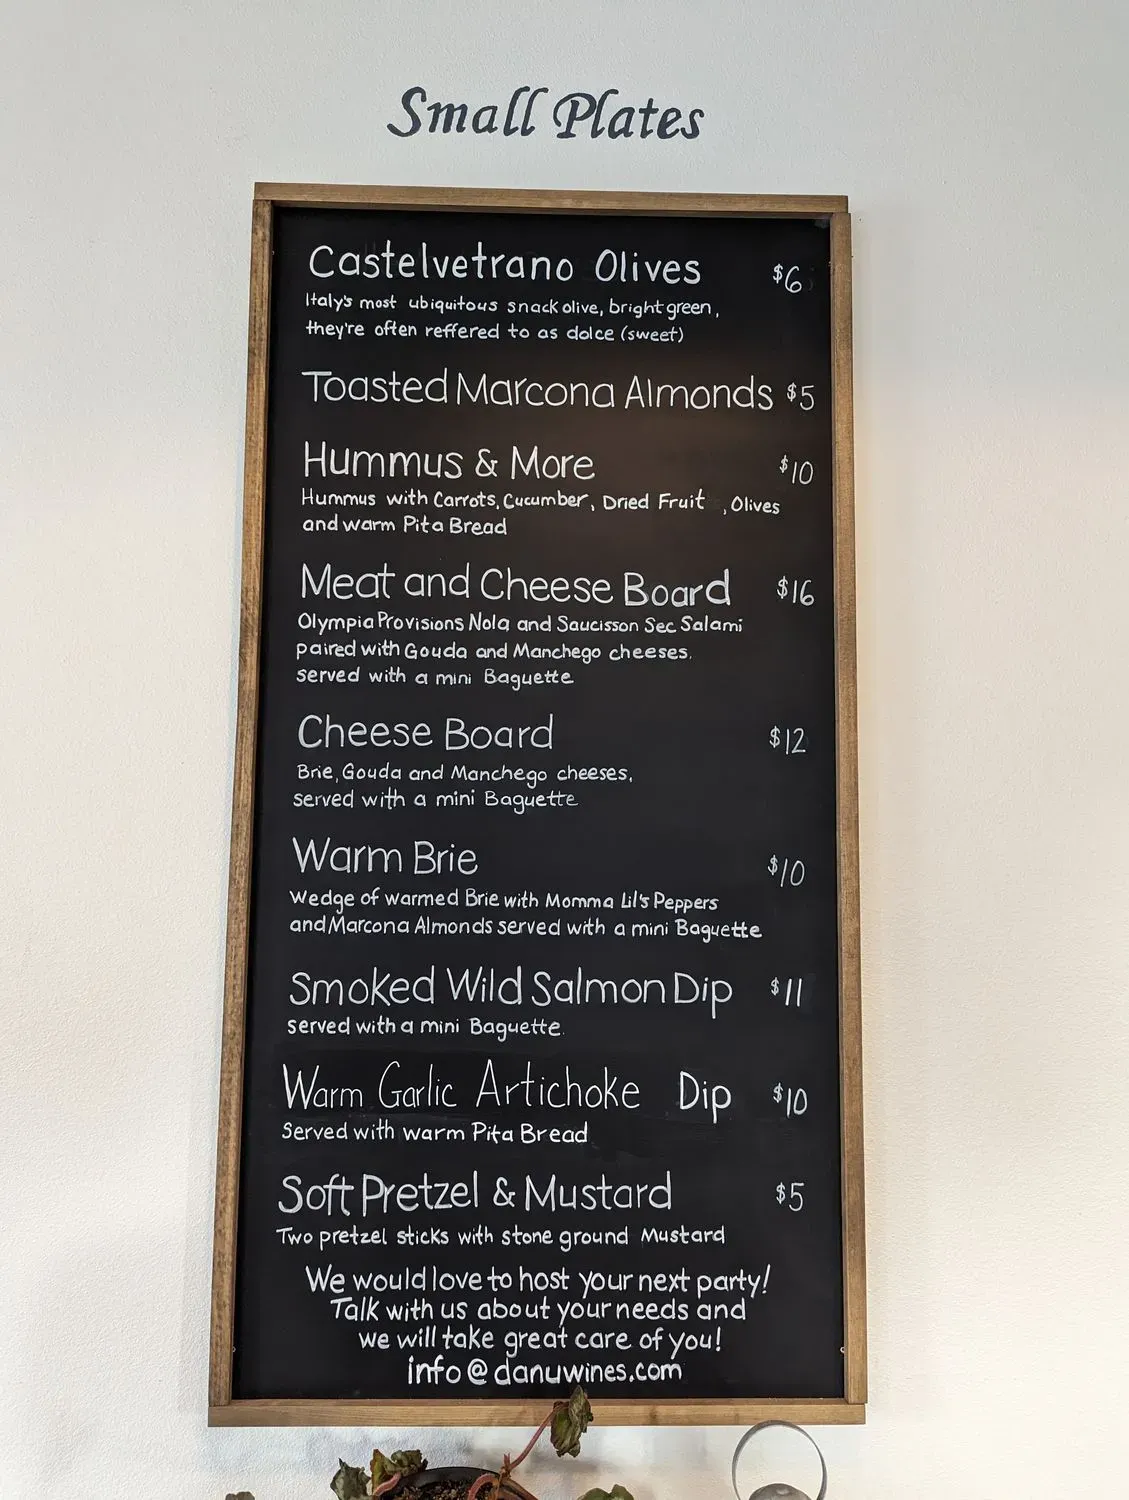 Small Plates
Castelvetrano Olives $6
Italy's most ubiquitous snack olive, bright green,
they're often reffered to as dolce (sweet)
Toasted Marcona Almonds $5
Hummus & More $10
Hummus with Carrots, Cucumber, Dried Fruit , Olives
and warm Pita Bread
Meat and Cheese Board $16
Olympia Provisions Nola and Saucisson Sec Salami
paired with Gouda and Manchego cheeses.
served with a mini Baguette
Cheese Board $12
Brie, Gouda and Manchego cheeses,
served with a mini Baguette
Warm Brie $10
Wedge of warmed Brie with Momma Lil's Peppers
and Marcona Almonds served with a mini Baguette
Smoked Wild Salmon Dip $11
served with a mini Baguette.
Warm Garlic Artichoke Dip $10
Served with warm Pita Bread
Soft Pretzel & Mustard $5
Two pretzel sticks with stone ground Mustard
We would love to host your next party!
Talk with us about your needs and
we will take great care of you!
info@danuwines.com